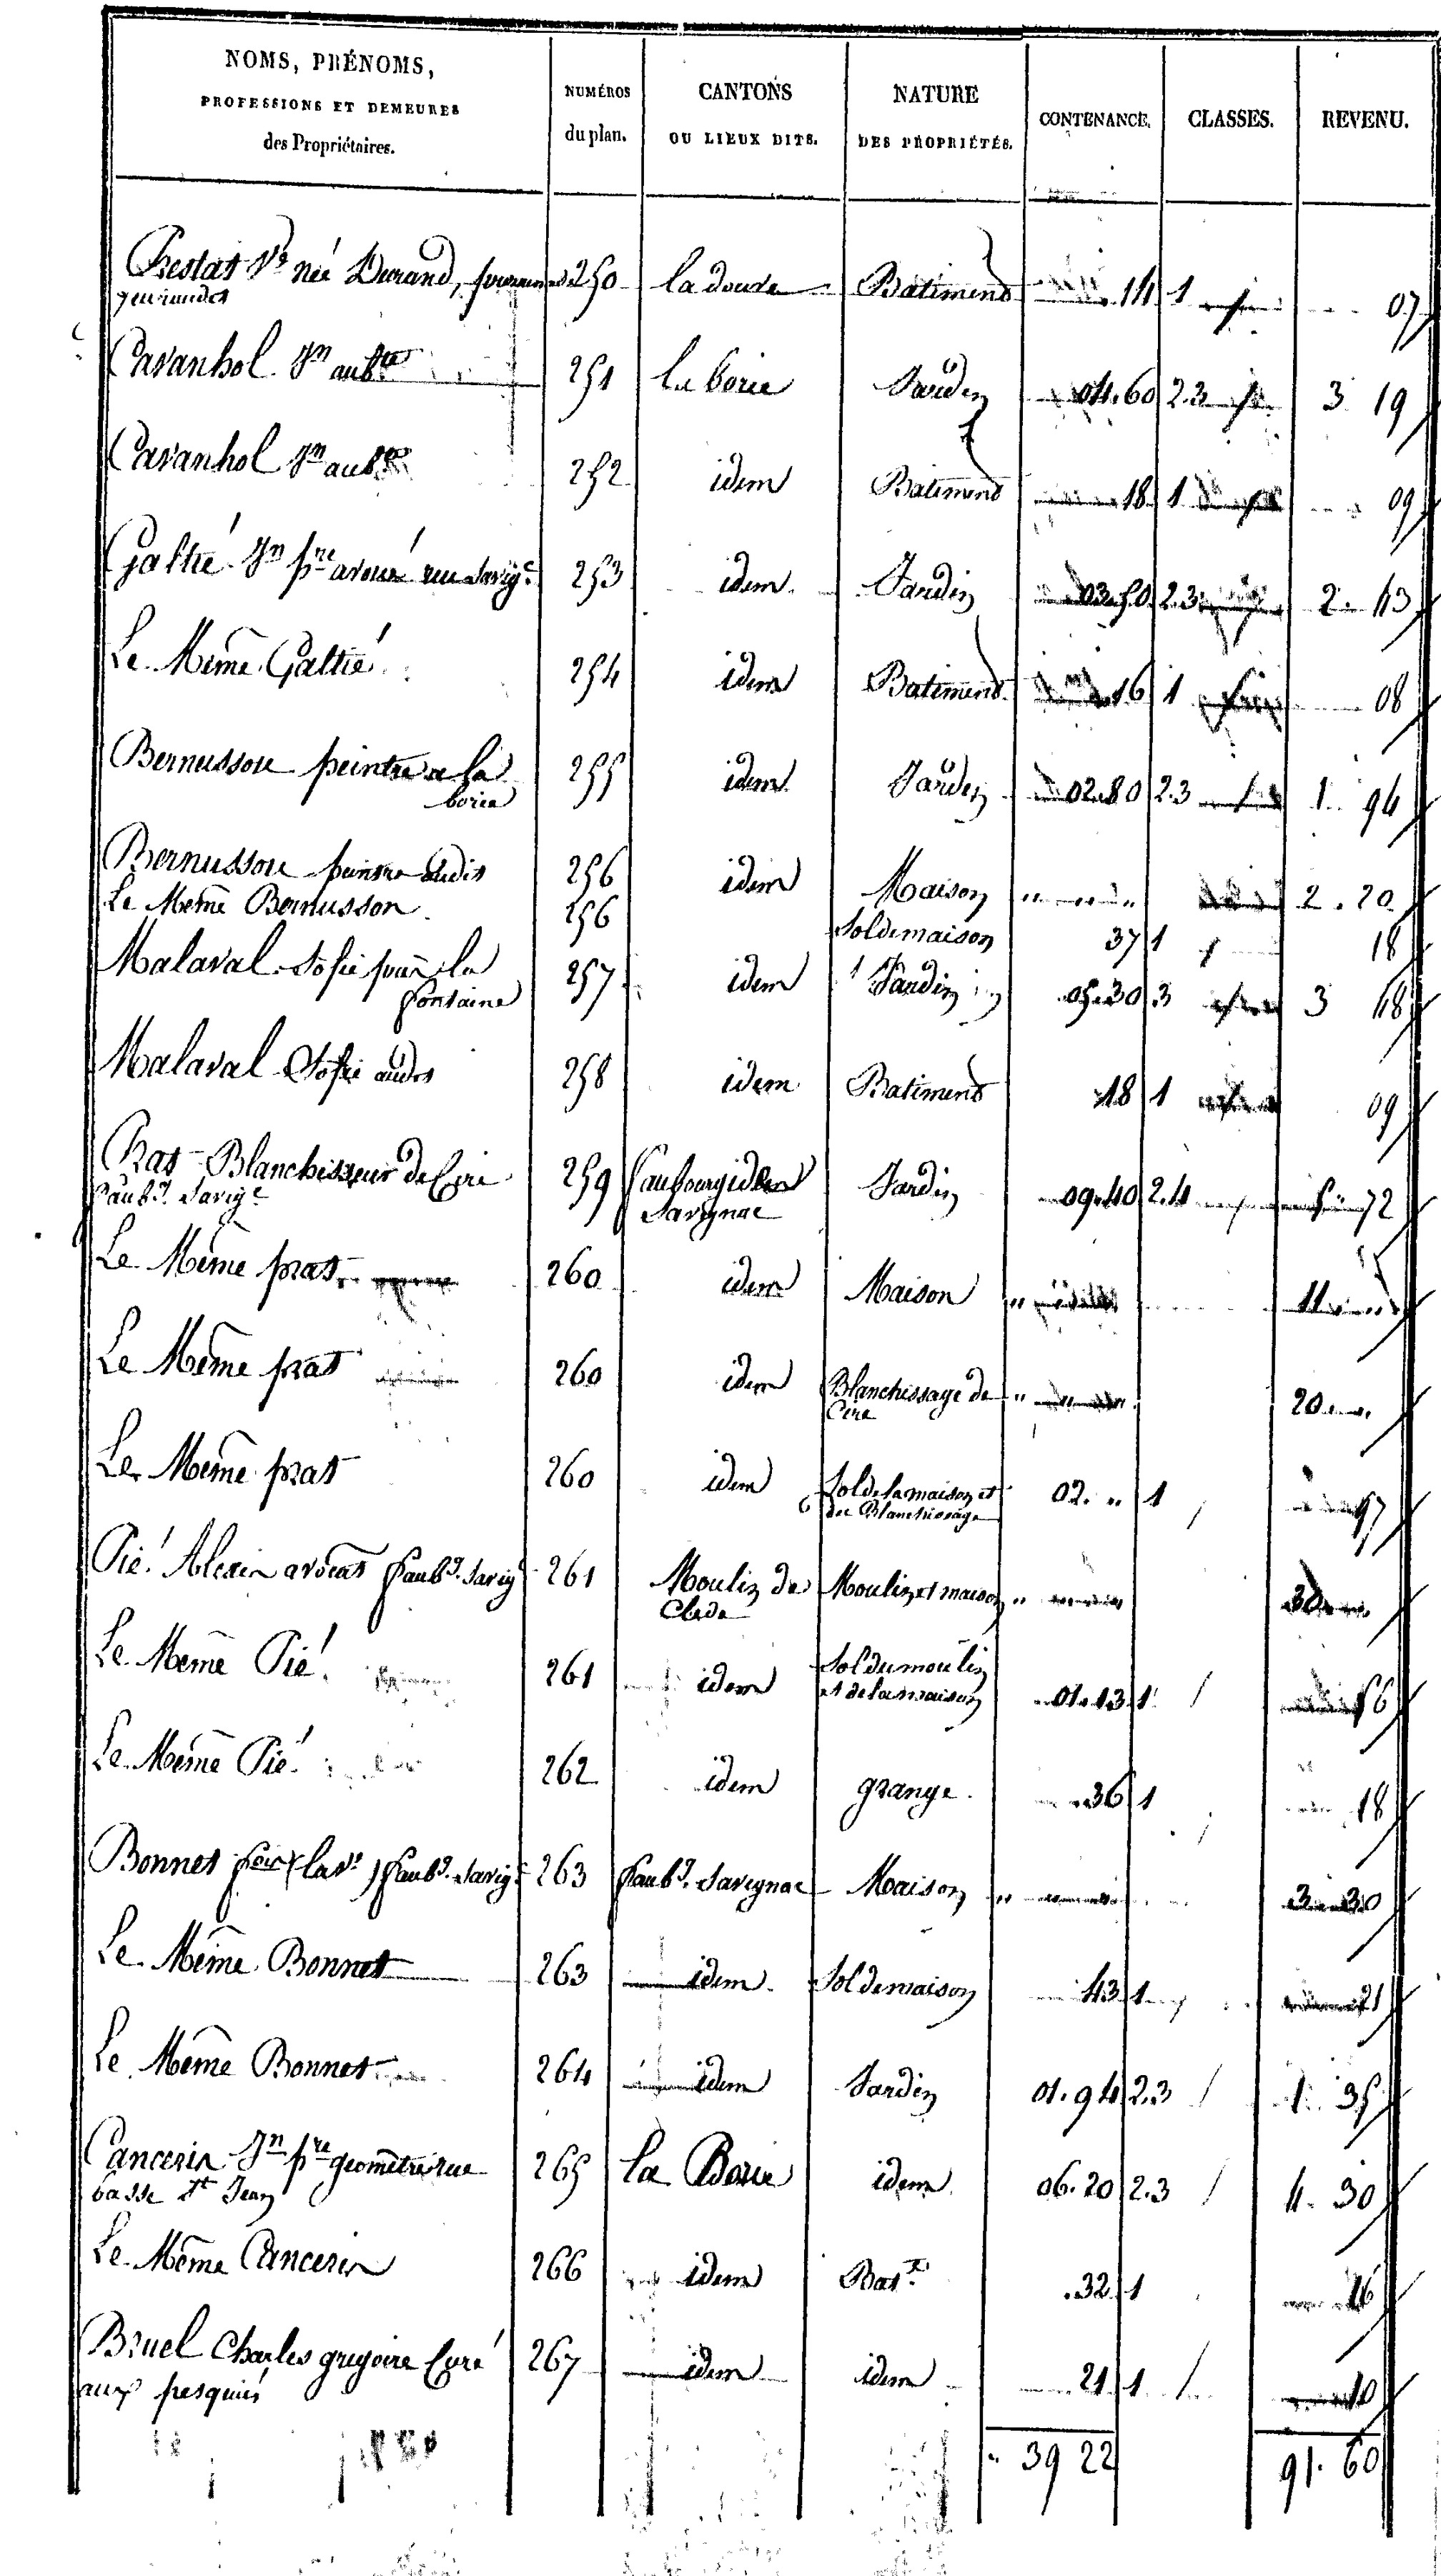 NOMS, PRÉNOMS,
PROFESSIONS ET DEMEURES
des Propriétaires.
NUMÉROS
du plan.
CANTONS
OU LIEUX DITS.
NATURE
DES PROPRIÉTÉS.
CONTENANCE.
CLASSES.
REVENU.
Prestat Ve née Durand, 250 la doure Batiment 14 1 07
Cavanhol Jn aubte 251 La borie Jardin 04.60 2.3 3 19
Cavanhol Jn aubte 252 idem Batiment 18 1 09
Galtié Jn pre avoué rue Savigc 253 idem Jardin 03.50 2.3 2 43
Le Même Galtié 254 idem Batiment 16 1 08
Bernussou peintre a la 255 idem Jardin 02.80 2.3 1 94
borie
Bernussou peintre audit 256 idem Maison 2.20
Le Même Bernussou 256 Sol de maison 37 1 18
Malaval Sofie pour la 257 idem Jardin 05.30 3 3 48
fontaine
Malaval Sofie audt 258 idem Batiment 18 1 09
Prat Blanchisseur de Cire 259 faubourg Jardin 09.40 2.4 72
faubg Savigc Savignac
Le Même prat 260 idem Maison 11
Le Même prat 260 idem Blanchissage de 20
Cire
Le Même prat 260 idem Sol de la maison et 02. " 1 97
du Blanchissage
Pié Alexis avocat faubg Savigc 261 Moulin de Moulin et maison 30
Clede
Le Même Pié 261 idem Sol du moulin 01.13 1 56
et de la maison
Le Même Pié 262 idem grange 36 1 18
Bonnet faubg Savigc 263 faubg Savignac Maison 3 30
Le Même Bonnet 263 idem Sol de maison 43 1 21
Le Même Bonnet 264 idem Jardin 01.94 2.3 1 35
Canceris Jn pre geometre rue 265 La Borie idem 06.20 2.3 4.30
basse St Jean
Le Même Canceris 266 idem Bat 32 1 16
Bruel Charles gregoire Curé 267 idem idem 21 1 10
aux pesquiés
" 39 22 91.60